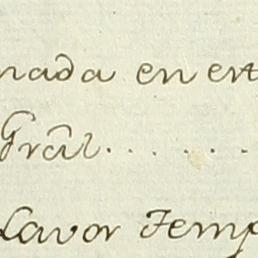 nada en est
Grâl. . . . . .
Lavor Temp